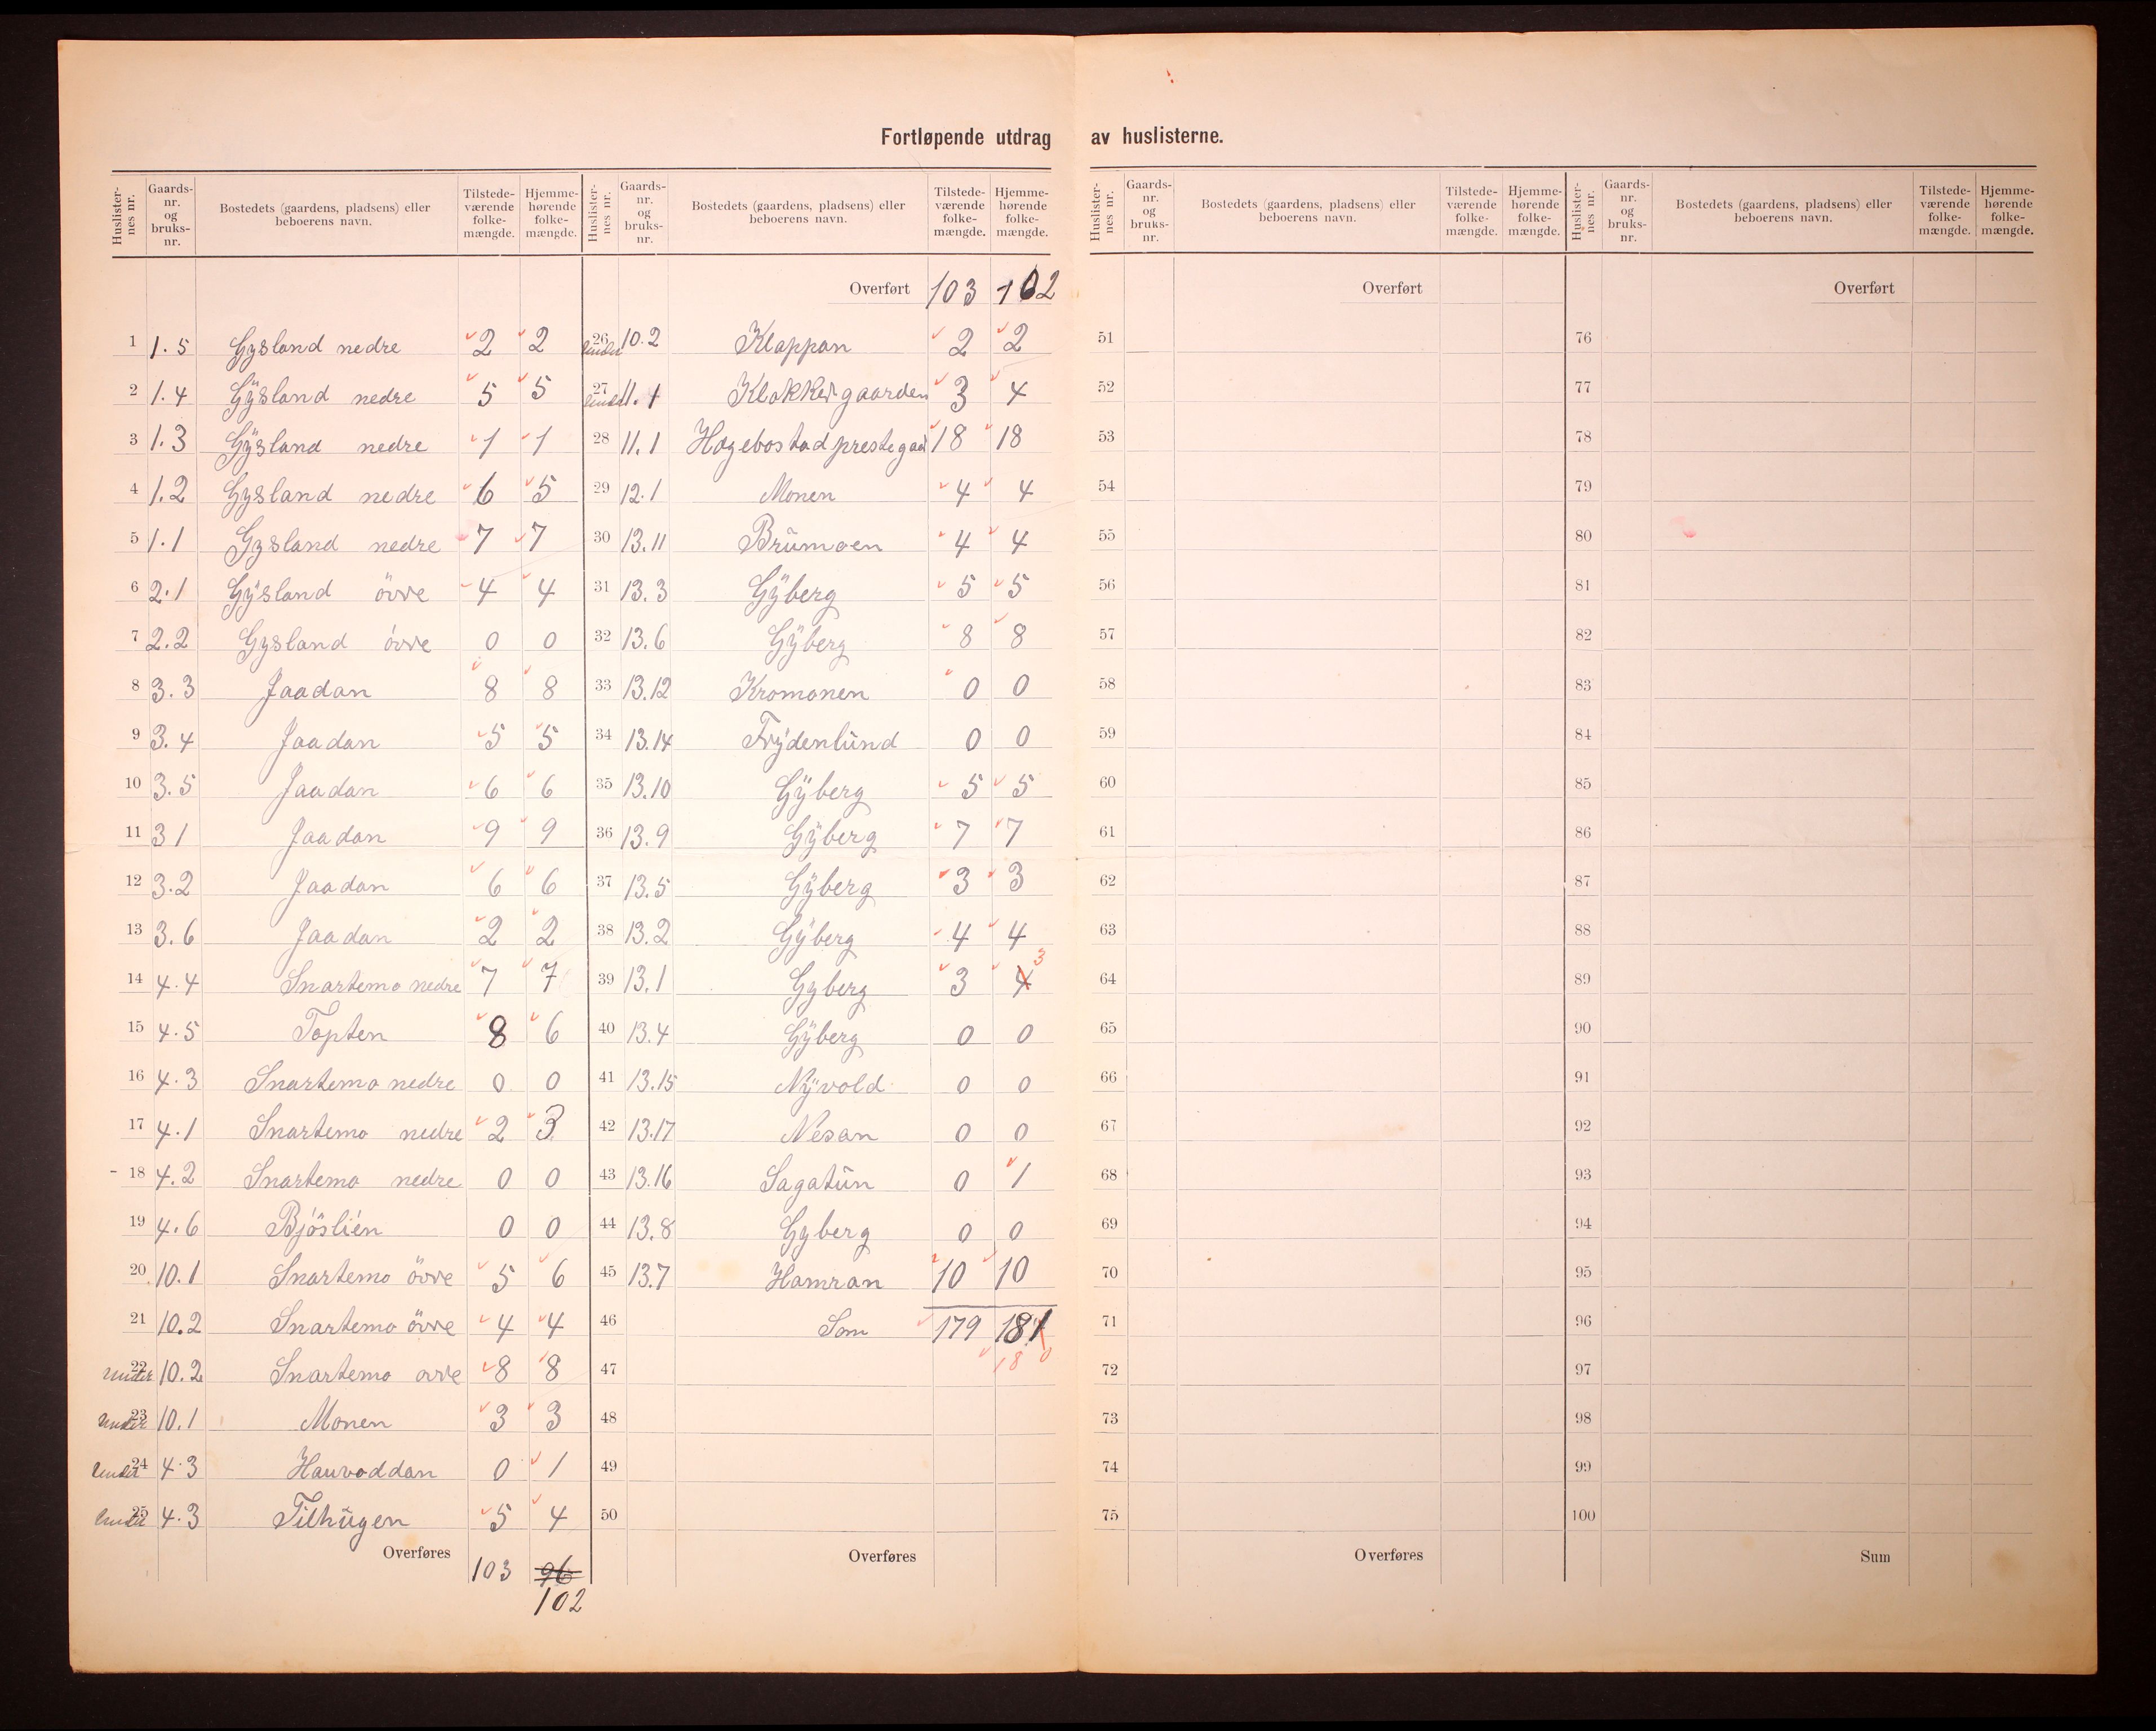 Fortløpende utdrag av huslisterne.
Huslister-nes nr. Gaards-nr. og bruks-nr. Bostedets (gaardens, pladsens) eller beboerens navn. Tilstede-værende folke-mængde. Hjemme-hørende folke-mængde.
1 1.5 Gysland nedre 2 2
2 1.4 Gÿsland nedre 5 5
3 1.3 Gÿsland nedre 1 1
4 1.2 Gysland nedre 6 5
5 1.1 Gysland nedre 7 7
6 2.1 Gÿsland övre 4 4
7 2.2 Gysland övre 0 0
8 3.3 Jaadan 8 8
9 3.4 Jaadan 5 5
10 3.5 Jaadan 6 6
11 3 1 Jaadan 9 9
12 3.2 Jaadan 6 6
13 3.6 Jaadan 2 2
14 4.4 Snartemo nedre 7 7
15 4.5 Topten 8 6
16 4.3 Snartemo nedre 0 0
17 4.1 Snartemo nedre 2 3
- 18 4.2 Snartemo nedre 0 0
19 4.6 Bjöslien 0 0
20 10.1 Snartemo övre 5 6
21 10.2 Snartemo övre 4 4
under 22 10.2 Snartemo ovre 8 8
under 23 10.1 Monen 3 3
under 24 4.3 Hauvoddan 0 1
under 25 4.3 Tilhügen 5 4
Overføres 103 96
102
Huslister-nes nr. Gaards-nr. og bruks-nr. Bostedets (gaardens, pladsens) eller beboerens navn. Tilstede-værende folke-mængde. Hjemme-hørende folke-mængde.
Overført 103 102
under 26 10.2 Klappan 2 2
under 27 11.1 Klokkergaarden 3 4
28 11.1 Hægebostad prestegaar 18 18
29 12.1 Monen 4 4
30 13.11 Brümoen 4 4
31 13.3 Gÿberg 5 5
32 13.6 Gÿberg 8 8
33 13.12 Kromonen 0 0
34 13.14 Frÿdenlünd 0 0
35 13.10 Gÿberg 5 5
36 13.9 Gÿberg 7 7
37 13.5 Gÿberg 3 3
38 13.2 Gÿberg 4 4
39 13.1 Gyberg 3 4 3
40 13.4 Gÿberg 0 0
41 13.15 Nÿvold 0 0
42 13.17 Nesan 0 0
43 13.16 Sagatün 0 1
44 13.8 Gyberg 0 0
45 13.7 Hamran 10 10
46 Som 179 181
47 18 0
48
49
50
Overføres
Huslister-nes nr. Gaards-nr. og bruks-nr. Bostedets (gaardens, pladsens) eller beboerens navn. Tilstede-værende folke-mængde. Hjemme-hørende folke-mængde.
Overført
51
52
53
54
55
56
57
58
59
60
61
62
63
64
65
66
67
68
69
70
71
72
73
74
75
Overføres
Huslister-nes nr. Gaards-nr. og bruks-nr. Bostedets (gaardens, pladsens) eller beboerens navn. Tilstede-værende folke-mængde. Hjemme-hørende folke-mængde.
Overført
76
77
78
79
80
81
82
83
84
85
86
87
88
89
90
91
92
93
94
95
96
97
98
99
100
Sum